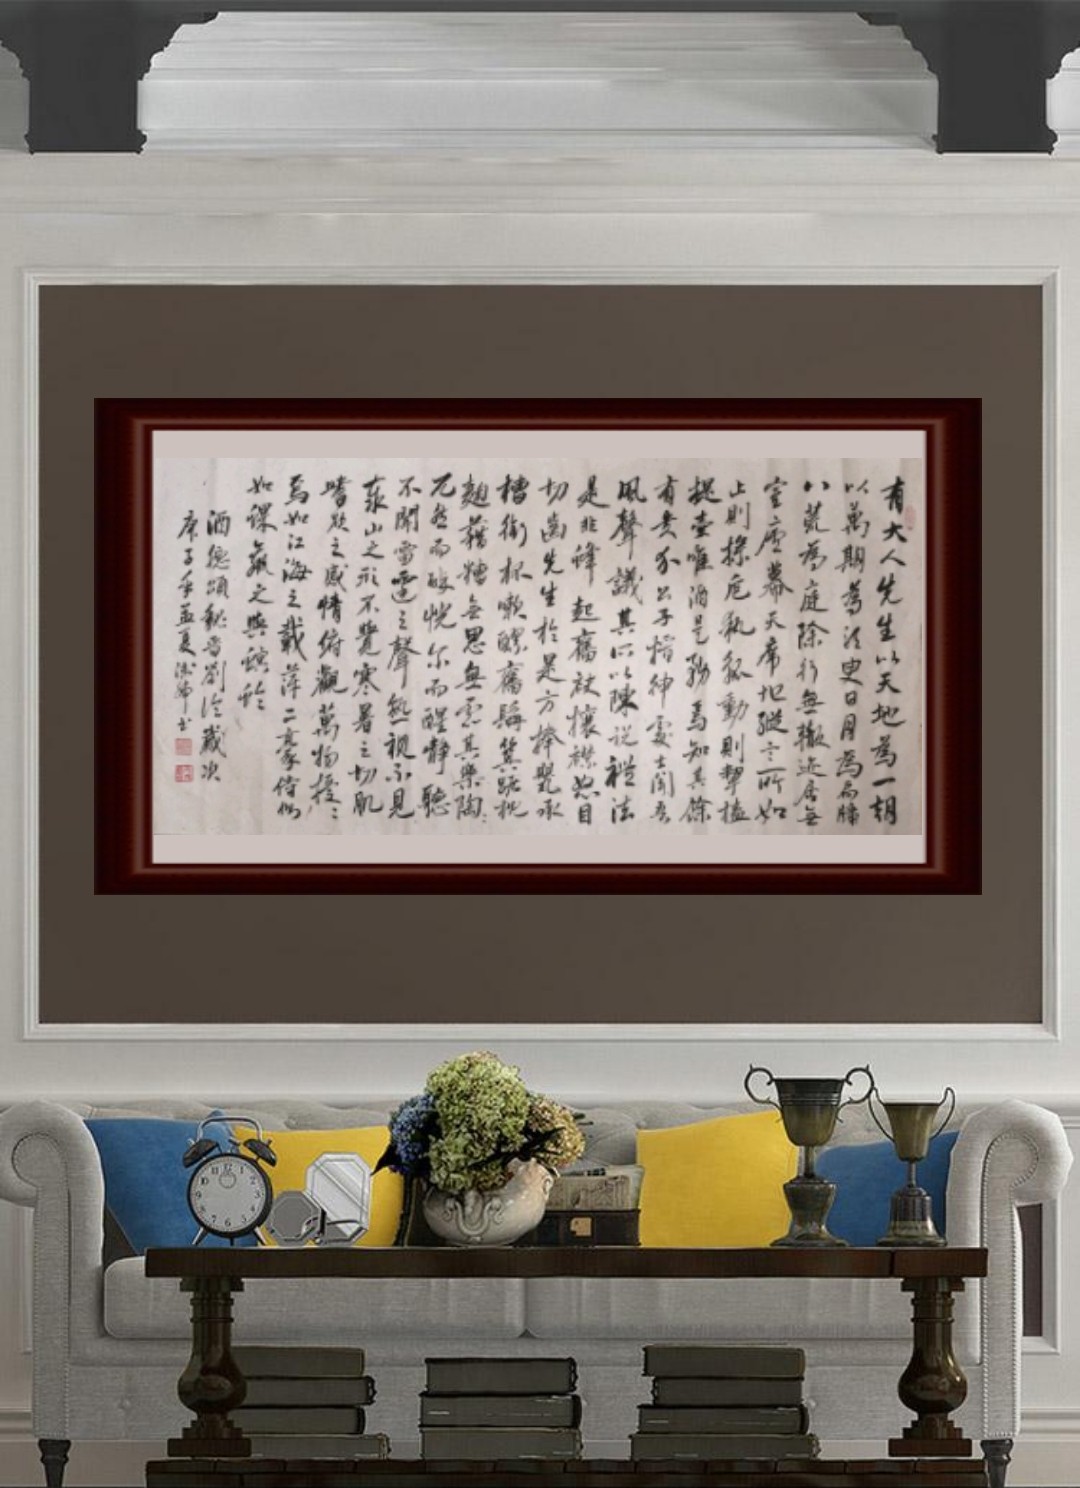 有大人先生以天地為一朝
以萬期為須臾日月為扃牖
八荒為庭除行無轍迹居無
室廬幕天席地縱意所如
止則操卮執觚動則挈榼
提壺唯酒是務焉知其餘
有貴介公子搢紳處士聞吾
風聲議其所以陳說禮法
是非鋒起奮袂攘襟怒目
切齒先生於是方捧甖承
槽銜杯漱醪奮髯箕踞枕
麴藉糟無思無慮其樂陶:
兀然而醉恍尔而醒靜聽
不聞雷霆之聲熟視不見
泰山之形不覺寒暑之切肌
嗜欲之感情俯觀萬物擾:
焉如江海之載萍二豪侍側
如蜾蠃之與螟蛉
酒德頌魏晉劉伶歲次
庚子年孟夏 书